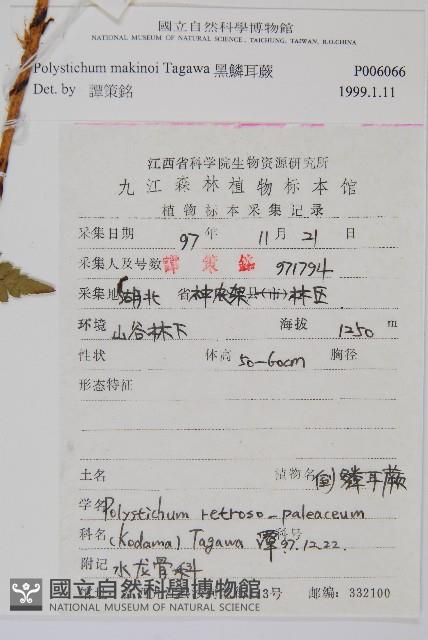 國立自然科學博物館
NATIONAL MUSEUM OF NATURAL SCIENCE, TAICHUNG, TAIWAN, R.O.CHINA
Polystichum makinoi Tagawa 黑鱗耳蕨 P006066
Det. by 譚策銘 1999.1.11
江西省科学院生物资源研究所
九江森林植物标本馆
植物标本采集记录
采集日期 97 年 11 月 21 日
采集人及号数 譚策銘 971794
采集地 湖北 省 神农架 县(市) 林区
环境 山谷林下 海拔 1250 m
性状 体高 50-60cm 胸径
形态特征
土名 植物名 倒鳞耳蕨
学名 Polystichum retroso-paleaceum
科名 (Kodama) Tagawa 谭 科号 97.12.22.
附记 水龙骨科
國立自然科學博物館
NATIONAL MUSEUM OF NATURAL SCIENCE
3号 邮编: 332100